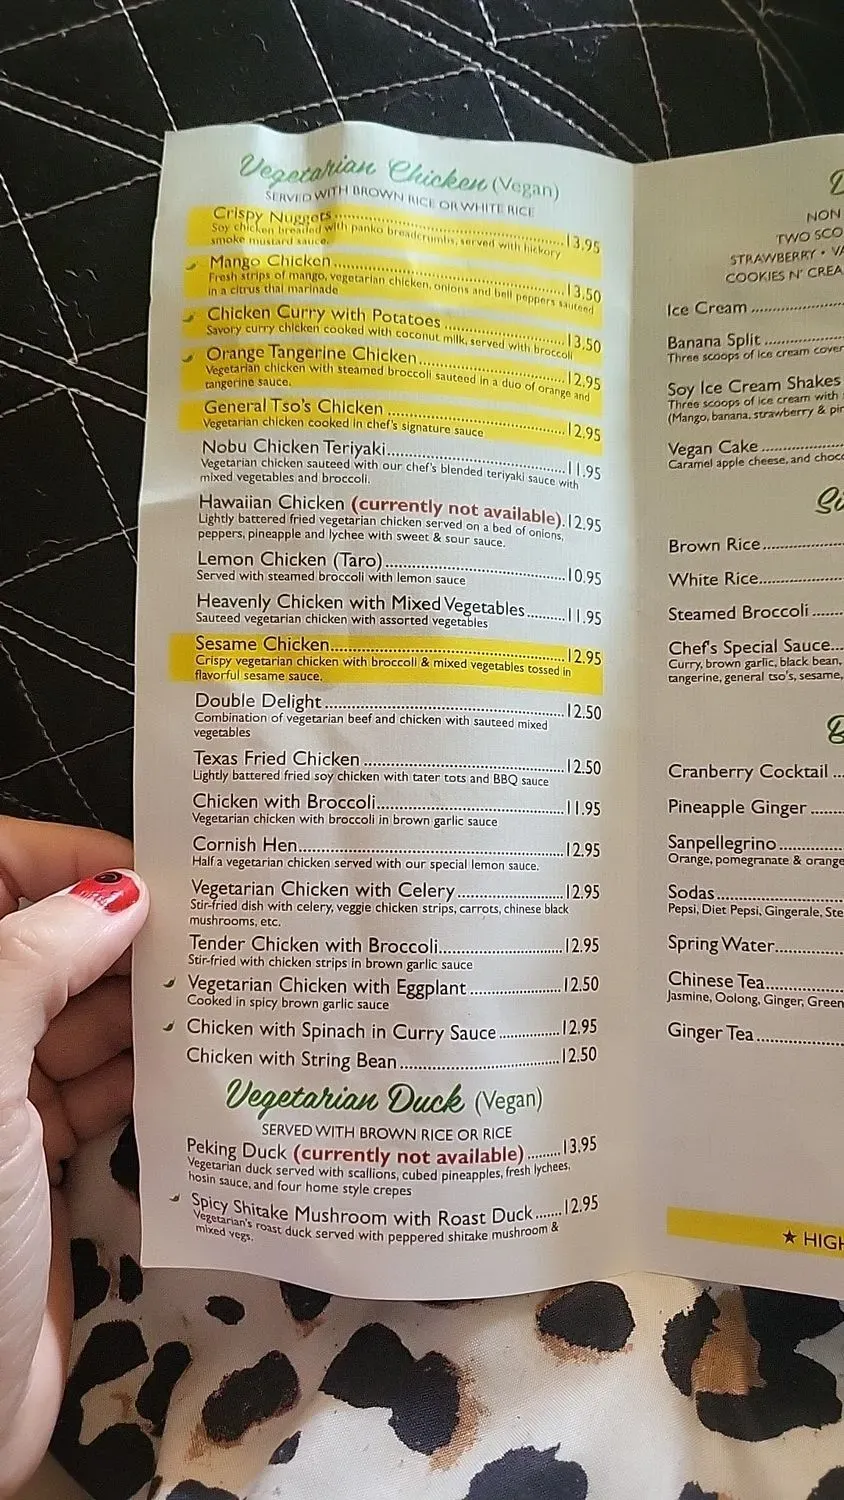 Vegetarian Chicken (Vegan)
SERVED WITH BROWN RICE OR WHITE RICE
Crispy Nuggets..........13.95
Soy chicken breaded with panko breadcrumbs, served with hickory
smoke mustard sauce.
Mango Chicken..........13.50
Fresh strips of mango, vegetarian chicken, onions and bell peppers sauteed
in a citrus thai marinade
Chicken Curry with Potatoes..........13.50
Savory curry chicken cooked with coconut milk, served with broccoli
Orange Tangerine Chicken..........12.95
Vegetarian chicken with steamed broccoli sauteed in a duo of orange and
tangerine sauce.
General Tso's Chicken..........12.95
Vegetarian chicken cooked in chef's signature sauce
Nobu Chicken Teriyaki..........11.95
Vegetarian chicken sauteed with our chef's blended teriyaki sauce with
mixed vegetables and broccoli.
Hawaiian Chicken (currently not available).12.95
Lightly battered fried vegetarian chicken served on a bed of onions,
peppers, pineapple and lychee with sweet & sour sauce.
Lemon Chicken (Taro)..........10.95
Served with steamed broccoli with lemon sauce
Heavenly Chicken with Mixed Vegetables..........11.95
Sauteed vegetarian chicken with assorted vegetables
Sesame Chicken..........12.95
Crispy vegetarian chicken with broccoli & mixed vegetables tossed in
flavorful sesame sauce.
Double Delight..........12.50
Combination of vegetarian beef and chicken with sauteed mixed
vegetables
Texas Fried Chicken..........12.50
Lightly battered fried soy chicken with tater tots and BBQ sauce
Chicken with Broccoli..........11.95
Vegetarian chicken with broccoli in brown garlic sauce
Cornish Hen..........12.95
Half a vegetarian chicken served with our special lemon sauce.
Vegetarian Chicken with Celery..........12.95
Stir-fried dish with celery, veggie chicken strips, carrots, chinese black
mushrooms, etc.
Tender Chicken with Broccoli..........12.95
Stir-fried with chicken strips in brown garlic sauce
Vegetarian Chicken with Eggplant..........12.50
Cooked in spicy brown garlic sauce
Chicken with Spinach in Curry Sauce..........12.95
Chicken with String Bean..........12.50
Vegetarian Duck (Vegan)
SERVED WITH BROWN RICE OR RICE
Peking Duck (currently not available)..........13.95
Vegetarian duck served with scallions, cubed pineapples, fresh lychees,
hosin sauce, and four home style crepes
Spicy Shitake Mushroom with Roast Duck.......12.95
Vegetarian's roast duck served with peppered shitake mushroom &
mixed vegs.
NON
TWO SCO
STRAWBERRY • VA
COOKIES N' CREA
Ice Cream..........
Banana Split..........
Three scoops of ice cream cover
Soy Ice Cream Shakes
Three scoops of ice cream with
(Mango, banana, strawberry & pin
Vegan Cake..........
Caramel apple cheese, and choco
Si
Brown Rice..........
White Rice..........
Steamed Broccoli......
Chef's Special Sauce...
Curry, brown garlic, black bean,
tangerine, general tso's, sesame,
Cranberry Cocktail ..
Pineapple Ginger......
Sanpellegrino..........
Orange, pomegranate & orange
Sodas..........
Pepsi, Diet Pepsi, Gingerale, Ste
Spring Water..........
Chinese Tea..........
Jasmine, Oolong, Ginger, Green
Ginger Tea..........
★ HIGH